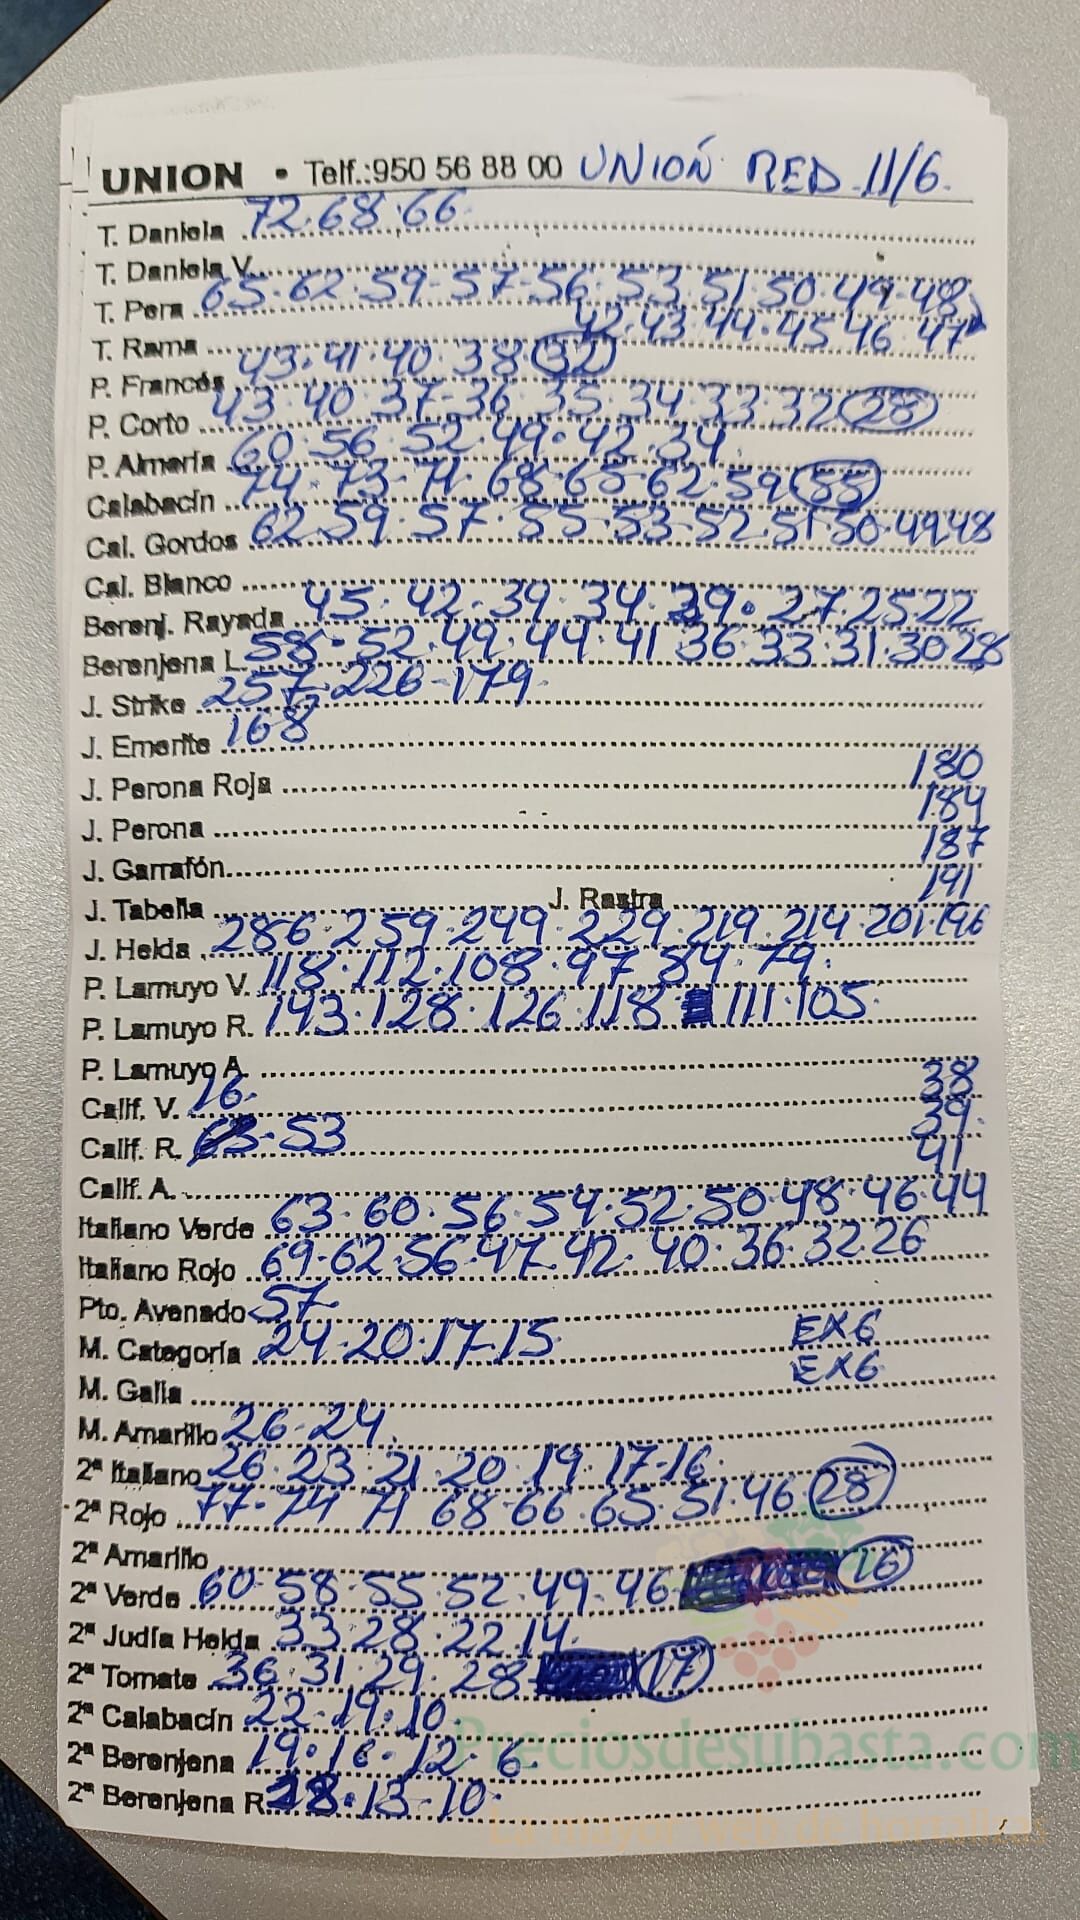 UNION • Telf.:950 56 88 00 UNION RED 11/6.
T. Daniela 72.68.66
T. Daniela V.
T. Pera 65.62.59-57-56.53.51.50.49-48
42.43.44.45.46.47
T. Rama 43.41.40.38 (32)
P. Francés
P. Corto 43.40.37-36.35.34.33.32 (28)
P. Almería 60.56.52.49.42.34
Calabacín 74-73-71.68-65-62.59 (55)
Cal. Gordos 62.59.57.55.53-52.51.50.49.48
Cal. Blanco
Berenj. Rayada 45.42.39.34.29.27.25.22
Berenjena L. 58.52.49.44.41 36.33.31.30 28
J. Strike 257.226-179
J. Emerite 168
J. Perona Roja 180
J. Perona 184
J. Garrafón 187
J. Tabella J. Rastra 191
J. Helda 286.259.249.229.219.214.201.196
P. Lamuyo V. 118.112.108.97.84.79
P. Lamuyo R. 143.128.126.118 111.105
P. Lamuyo A.
Calif. V. 16. 38
Calif. R. 53 39
Calif. A. 41
Italiano Verde 63.60.56.54.52.50.48.46.44
Italiano Rojo 69.62.56.47.42.40.36.32.26
Pto. Avenado 57
M. Categoría 24.20.17-15 EX6
M. Galia EX6
M. Amarillo 26-24
2ª Italiano 26.23.21.20.19.17-16
2ª Rojo 77-74 71 68-66.65.51.46 (28)
2ª Amarillo
2ª Verde 60.58.55.52.49.46 (16)
2ª Judía Helda 33.28.22.14
2ª Tomate 36.31.29.28 (17)
2ª Calabacín 22-19.10
2ª Berenjena 19.16-12-6
2ª Berenjena R. 13-10
Preciosdesubasta.com
La mayor web de hortalizas